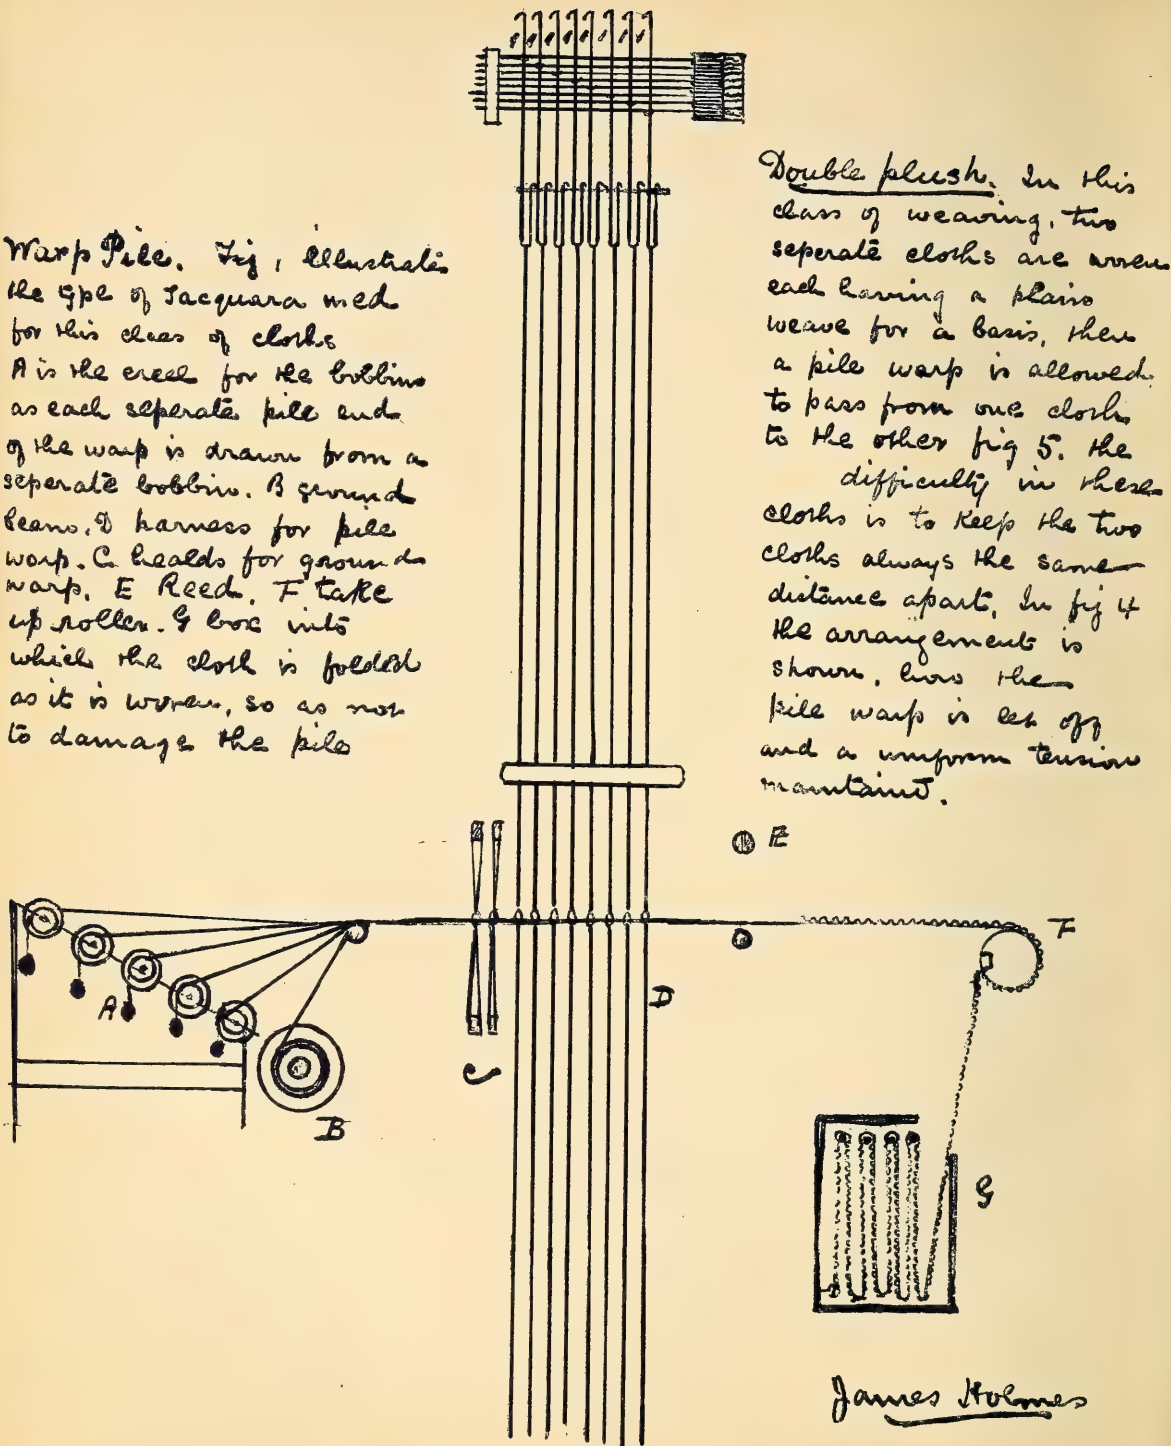 Warp Pile. Fig, illustrates
the type of Jacquard used
for this class of cloths
A is the creel for the bobbins
as each seperate pile end
of the warp is drawn from a
seperate bobbin. B ground
beams. D harness for pile
warp. C. healds for ground
warp. E Reed. F take
up roller. G box into
which the cloth is folded
as it is woven, so as not
to damage the pile
Double plush. In this
class of weaving, two
seperate cloths are woven
each having a plain
weave for a basis, then
a pile warp is allowed
to pass from one cloth
to the other fig 5. the
difficulty in these
cloths is to keep the two
cloths always the same
distance apart. In fig 4
the arrangement is
shown, how the
pile warp is let off
and a uniform tension
maintained.
E
F
A
D
C
B
G
James Holmes